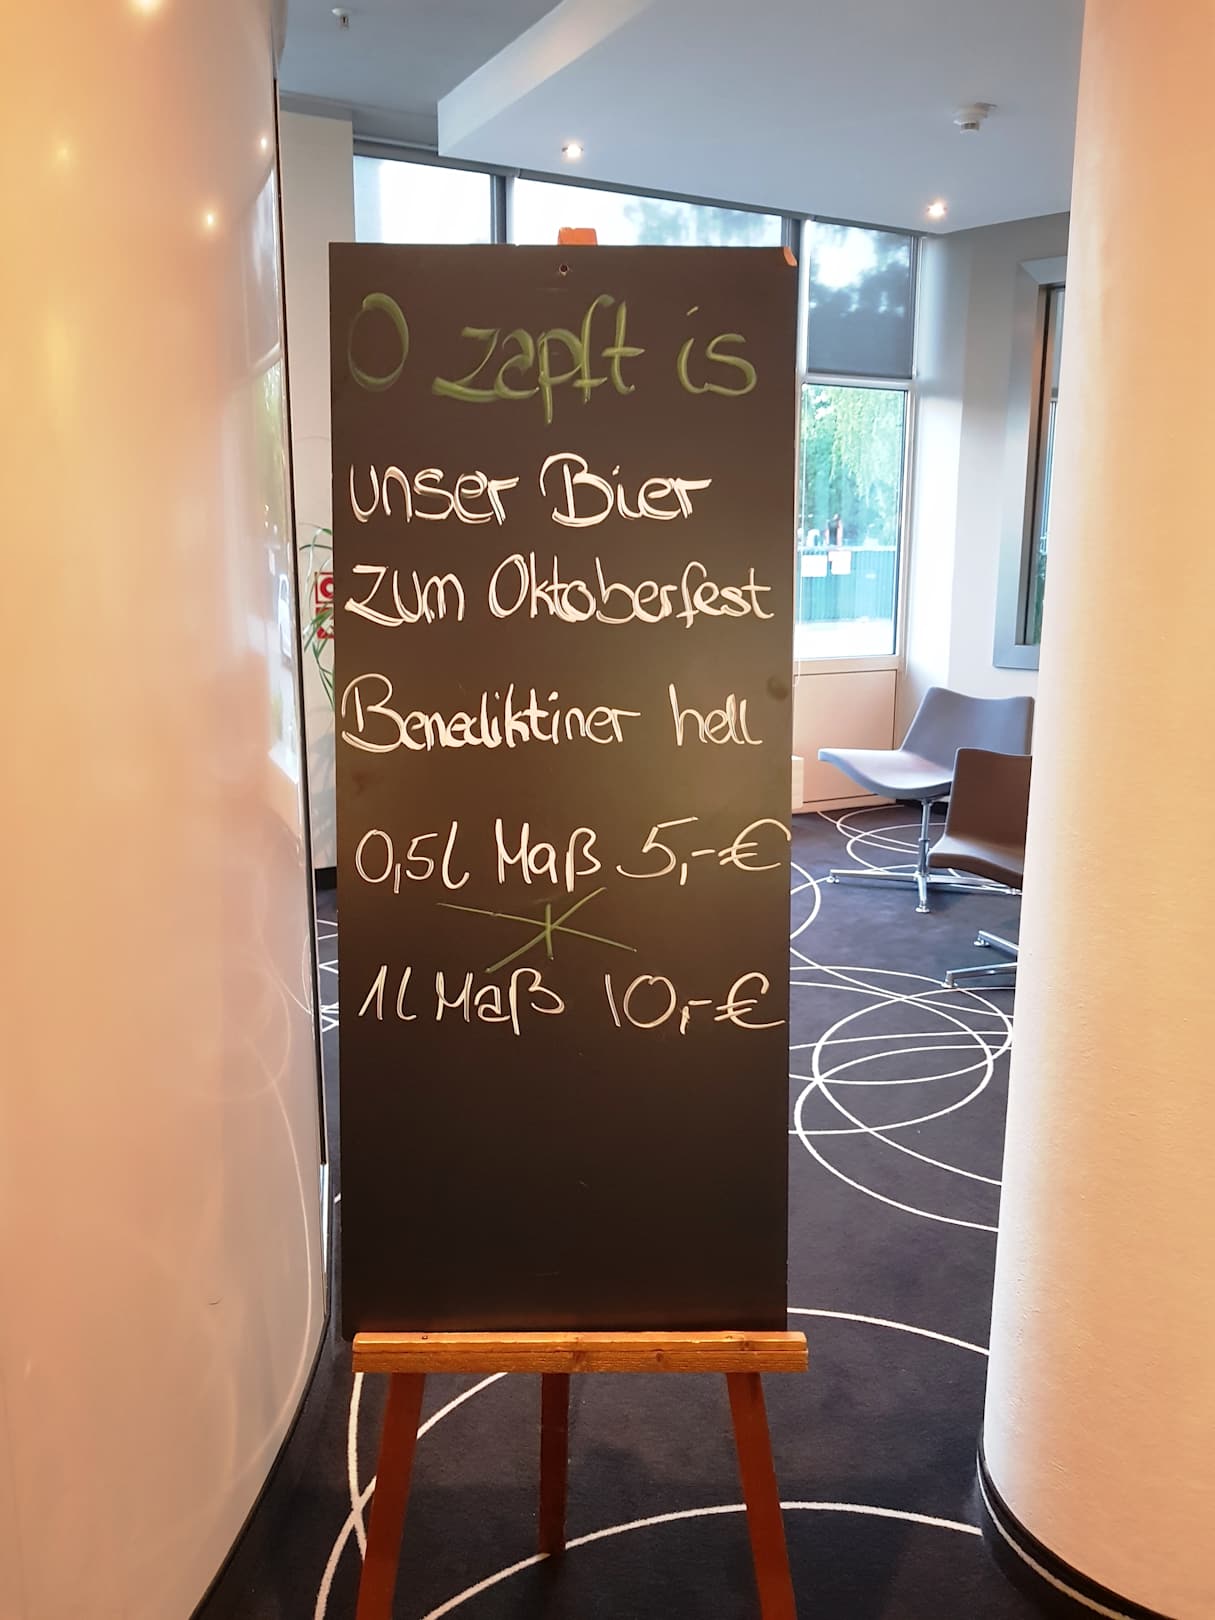 O zapft is
unser Bier
zum Oktoberfest
Benediktiner hell
0,5l Maß 5,-€
1l Maß 10,-€